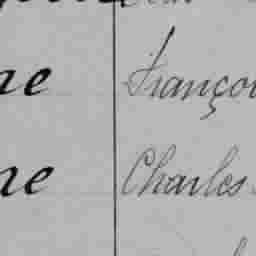 ne Françoi
ne Charles